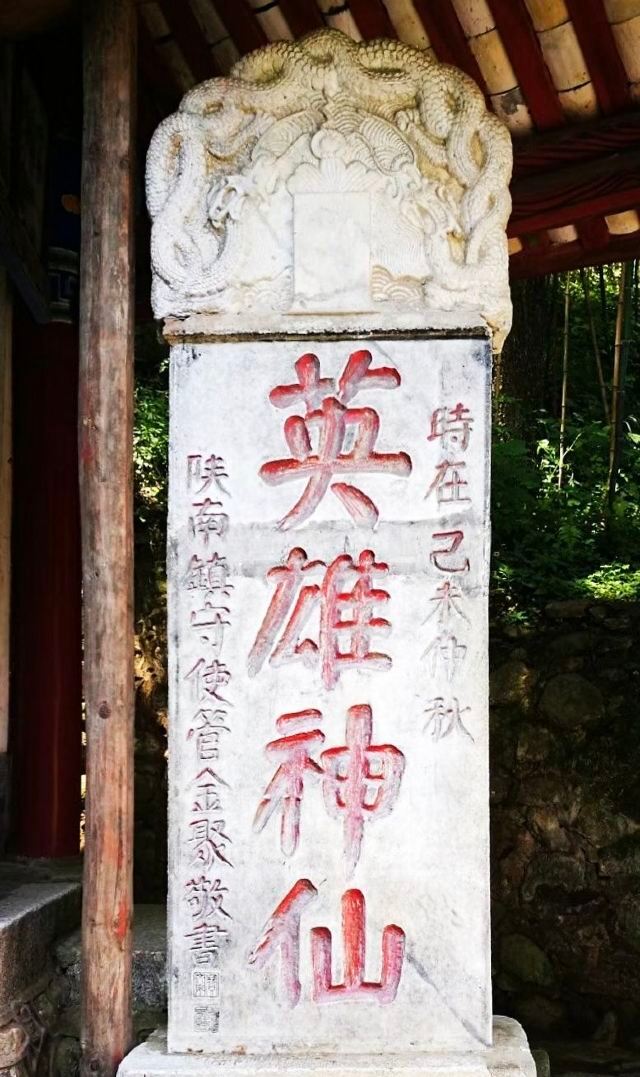 時在己未仲秋
英雄神仙
陕南鎮守使管金聚敬書